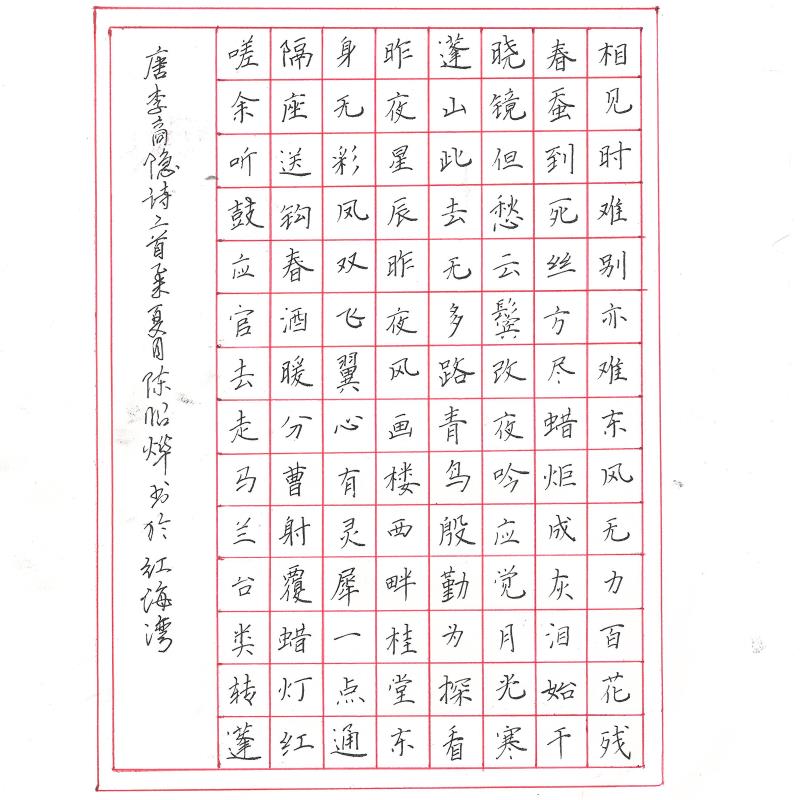 相见时难别亦难东风无力百花残
春蚕到死丝方尽蜡炬成灰泪始干
晓镜但愁云鬓改夜吟应觉月光寒
蓬山此去无多路青鸟殷勤为探看
昨夜星辰昨夜风画楼西畔桂堂东
身无彩凤双飞翼心有灵犀一点通
隔座送钩春酒暖分曹射覆蜡灯红
嗟余听鼓应官去走马兰台类转蓬
唐李商隐诗二首夏月陈昭烨书於红海湾